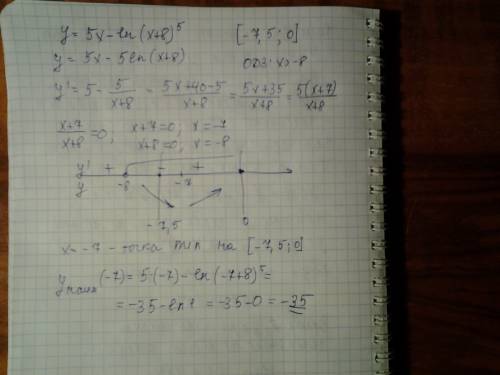 y = 5x - ln(x+8)^5 [-7,5; 0]
y = 5x - 5ln(x+8) ОДЗ: x>-8
y' = 5 - 5/(x+8) = (5x+40-5)/(x+8) = (5x+35)/(x+8) = 5(x+7)/(x+8)
(x+7)/(x+8) = 0; x+7=0; x=-7
x+8=0; x=-8
y' + - +
y -8 -7
-7,5 0
x=-7 - точка min на [-7,5; 0]
(-7) = 5·(-7) - ln(-7+8)^5 =
= -35 - ln1 = -35 - 0 = -35